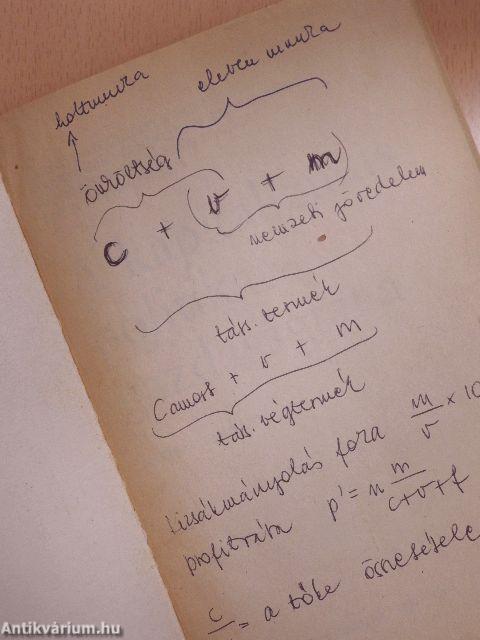 holtmunka eleven munka
önköltség
c + (v + m)
nemzeti jövedelem
társ. termék
Camort + v + m
társ. végtermék
kizsákmányolás foka m/v × 10
profitráta p' = n m/c+v+f
c/ = a tőke összetétele
Antikvárium.hu